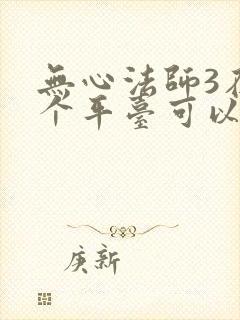 無心法師3在
个平臺可以
庚新